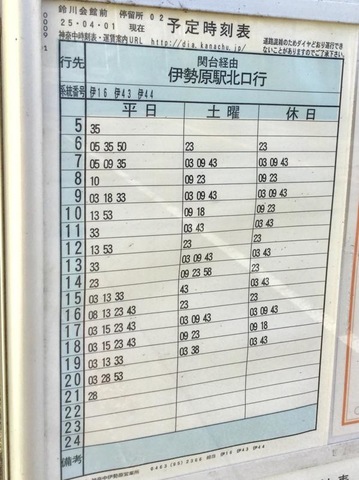 鈴川会館前 停留所 02
25-04-01 現在
予定時刻表
神奈中時刻表・運賃案内URL http://dia.kanachu.jp/
道路混雑のためダイヤどおり運行でき
ないことがありますのでご了承下さい。
行先 関台経由
伊勢原駅北口行
系統番号 伊16 伊43 伊44
平日 土曜 休日
5 35
6 05 35 50 23 23
7 05 09 35 03 09 43 03 09 43
8 10 09 23 09 23
9 03 18 33 03 09 43 03 09 43
10 13 53 09 18 09 23
11 33 03 43 03 43
12 13 53 09 23 23
13 33 03 09 43 03 43
14 23 09 23 58 09 23
15 03 13 33 43 03 43
16 08 13 23 43 23 23
17 03 15 23 43 03 09 43 03 09 43
18 03 15 23 43 09 23 09 18
19 03 13 33 03 38 03 43
20 03 28 53
21 28
22
23
24
備考